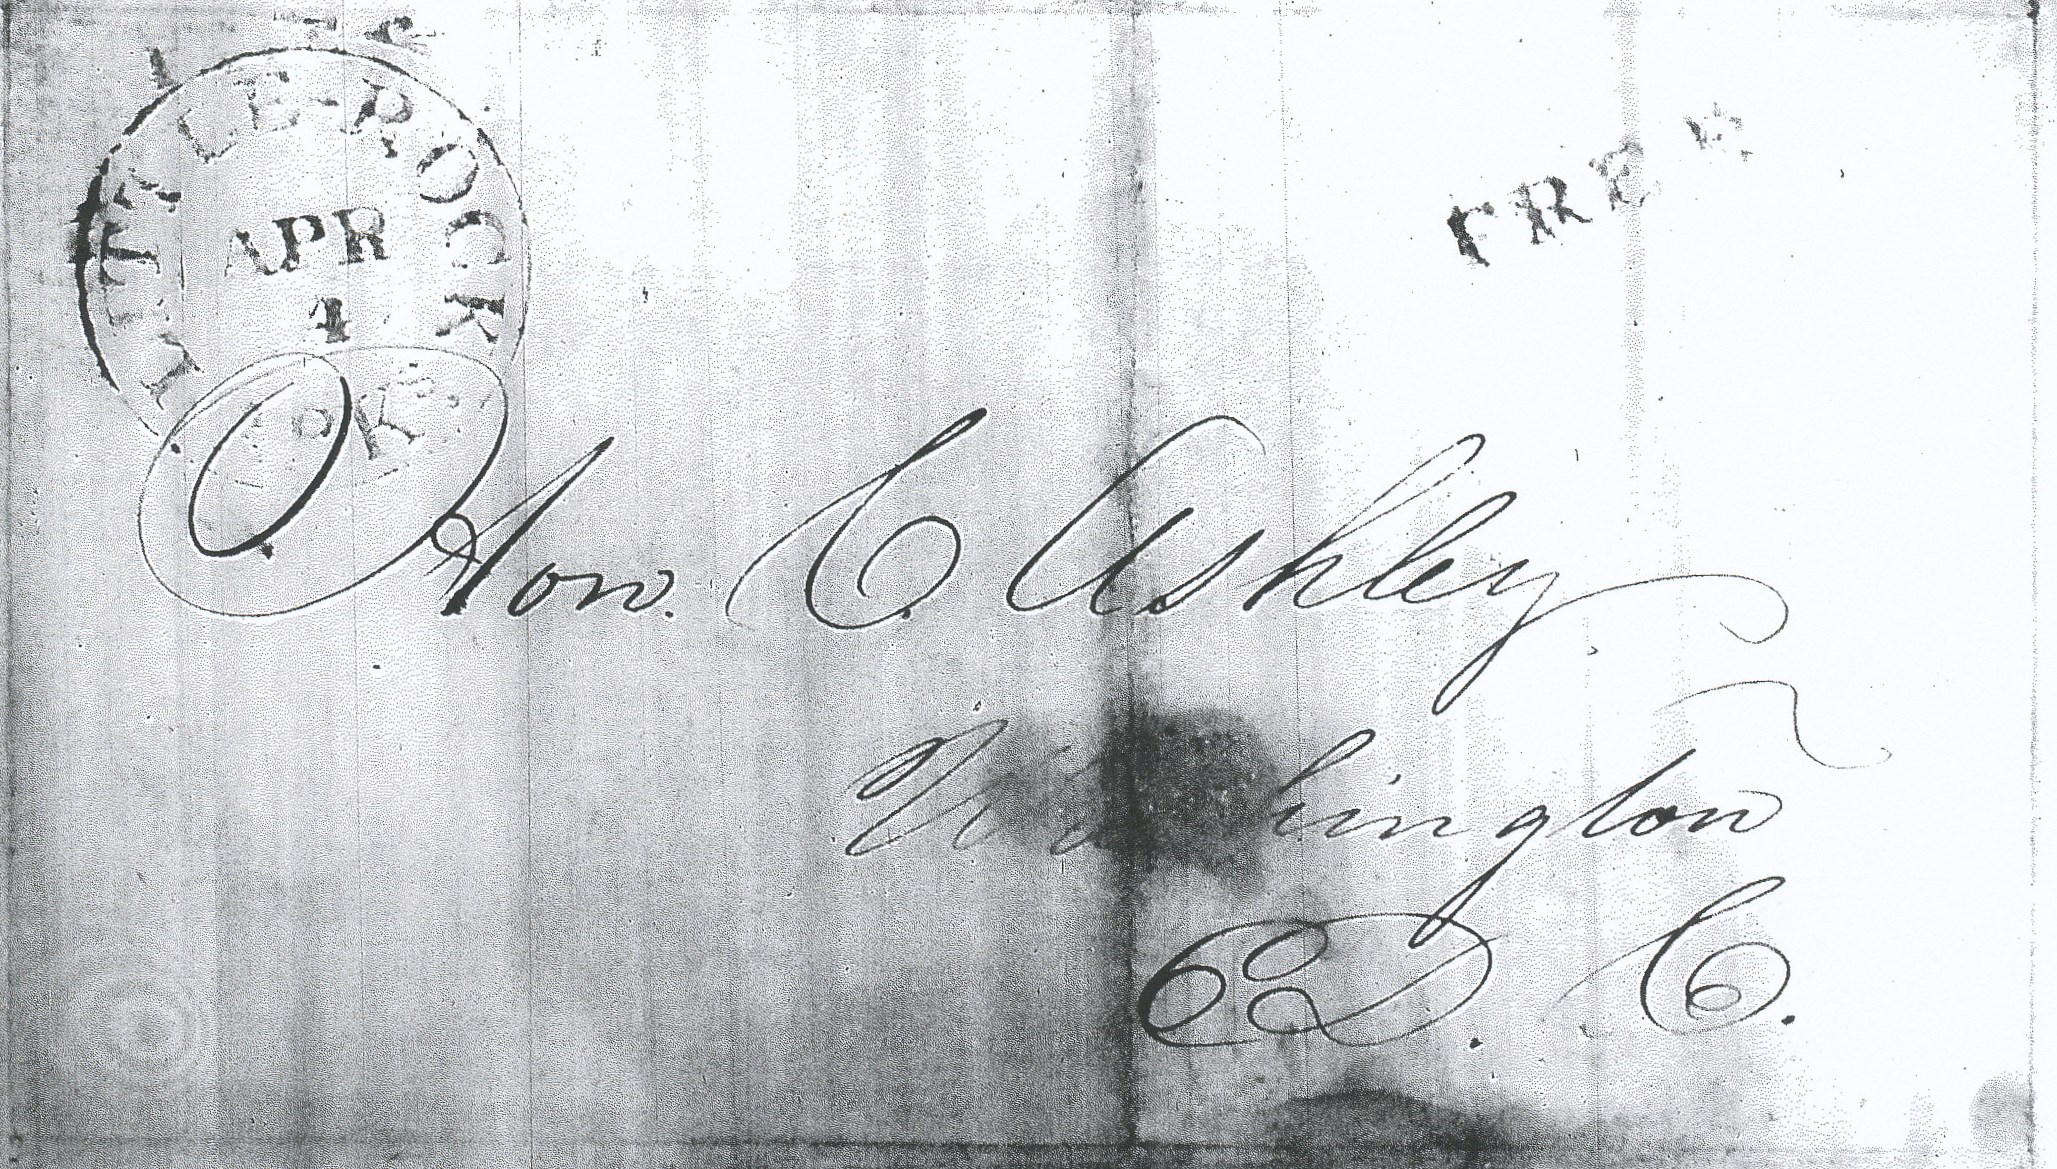 LITTLE-ROCK
APR
4
ARK.
FREE
Hon. C. Ashley
Washington
D. C.